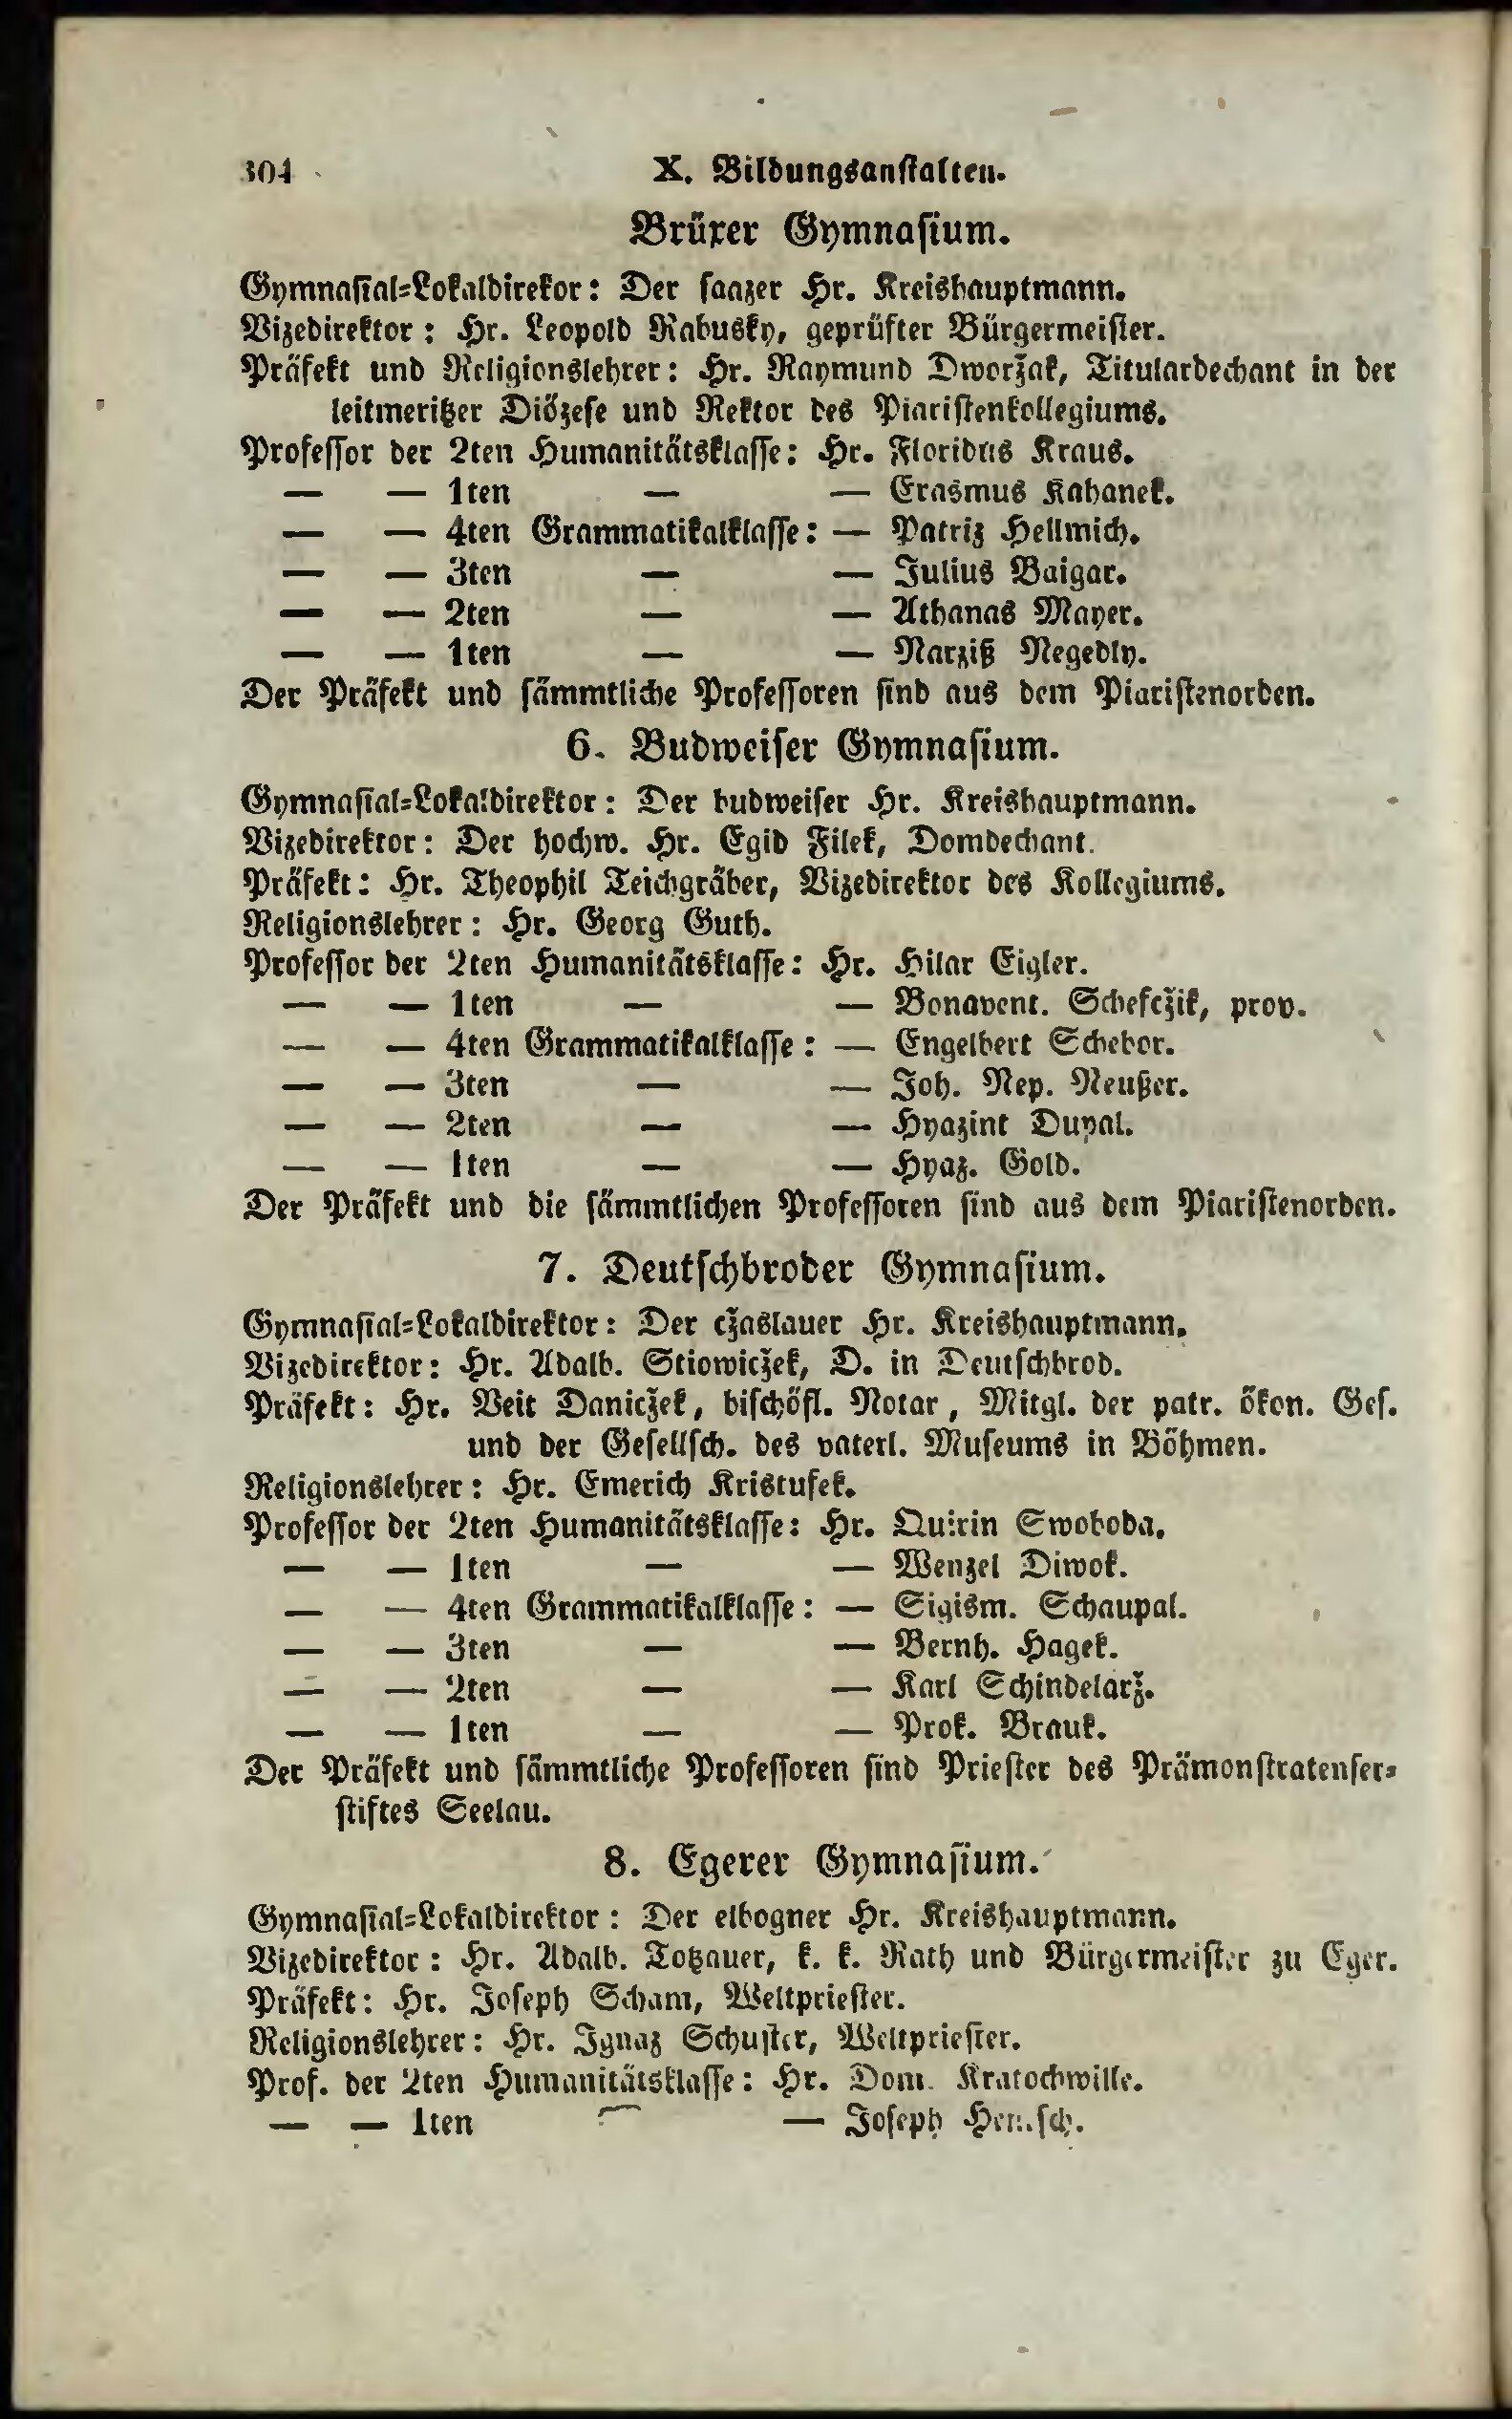 304 X. Bildungsanstalten.
Brüxer Gymnasium.
Gymnasial=Lokaldirekor: Der saazer Hr. Kreishauptmann.
Vizedirektor: Hr. Leopold Rabusky, geprüfter Bürgermeister.
Präfekt und Religionslehrer: Hr. Raymund Dworžak, Titulardechant in der
leitmeritzer Diözese und Rektor des Piaristenkollegiums.
Professor der 2ten Humanitätsklasse: Hr. Floridus Kraus.
— — 1ten — — Erasmus Kahanek.
— — 4ten Grammatikalklasse: — Patriz Hellmich.
— — 3ten — — Julius Baigar.
— — 2ten — — Athanas Mayer.
— — 1ten — — Narziß Negedly.
Der Präfekt und sämmtliche Professoren sind aus dem Piaristenorden.
6. Budweiser Gymnasium.
Gymnasial=Lokaldirektor: Der budweiser Hr. Kreishauptmann.
Vizedirektor: Der hochw. Hr. Egid Filek, Domdechant.
Präfekt: Hr. Theophil Teichgräber, Vizedirektor des Kollegiums.
Religionslehrer: Hr. Georg Guth.
Professor der 2ten Humanitätsklasse: Hr. Hilar Eigler.
— — 1ten — — Bonavent. Schefčzik, prov.
— — 4ten Grammatikalklasse: — Engelbert Schebor.
— — 3ten — — Joh. Nep. Neußer.
— — 2ten — — Hyazint Dupal.
— — 1ten — — Hyaz. Gold.
Der Präfekt und die sämmtlichen Professoren sind aus dem Piaristenorden.
7. Deutschbroder Gymnasium.
Gymnasial=Lokaldirektor: Der cžaslauer Hr. Kreishauptmann.
Vizedirektor: Hr. Adalb. Stiowicžek, D. in Deutschbrod.
Präfekt: Hr. Veit Danicžek, bischöfl. Notar, Mitgl. der patr. ökon. Ges.
und der Gesellsch. des vaterl. Museums in Böhmen.
Religionslehrer: Hr. Emerich Kristufek.
Professor der 2ten Humanitätsklasse: Hr. Quirin Swoboda.
— — 1ten — — Wenzel Diwok.
— — 4ten Grammatikalklasse: — Sigism. Schaupal.
— — 3ten — — Bernh. Hagek.
— — 2ten — — Karl Schindelarž.
— — 1ten — — Prok. Brauk.
Der Präfekt und sämmtliche Professoren sind Priester des Prämonstratenser=
stiftes Seelau.
8. Egerer Gymnasium.
Gymnasial=Lokaldirektor: Der elbogner Hr. Kreishauptmann.
Vizedirektor: Hr. Adalb. Totzauer, k. k. Rath und Bürgermeister zu Eger.
Präfekt: Hr. Joseph Scham, Weltpriester.
Religionslehrer: Hr. Ignaz Schuster, Weltpriester.
Prof. der 2ten Humanitätsklasse: Hr. Dom. Kratochwille.
— — 1ten — — Joseph